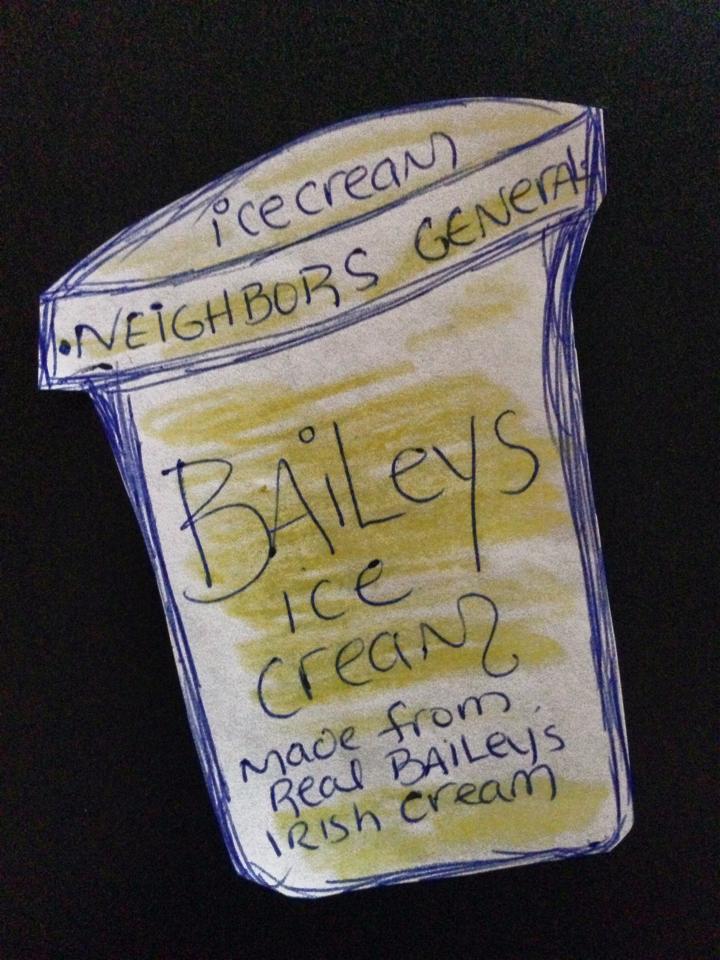 icecream
NEIGHBORS GENERAL
BAiLeys
ice
cream
made from
Real BAiLeys
IRish cream